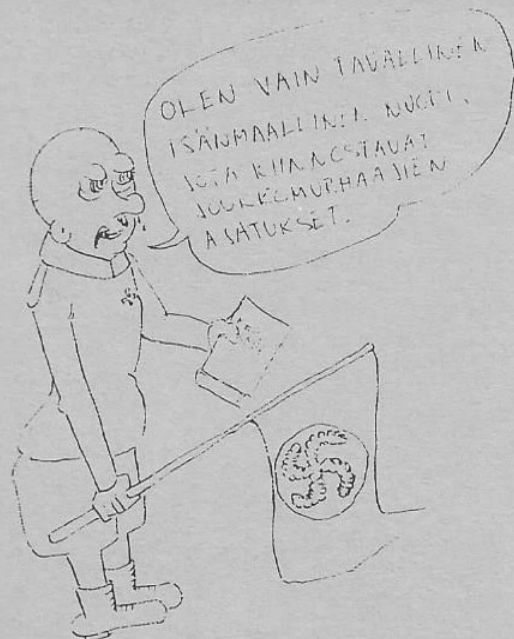 OLEN VAIN TAVALLINEN
ISÄNMAALLINEN NUORI,
JOTA KIINNOSTAVAT
JOUKKOMURHAAJIEN
AJATUKSET.